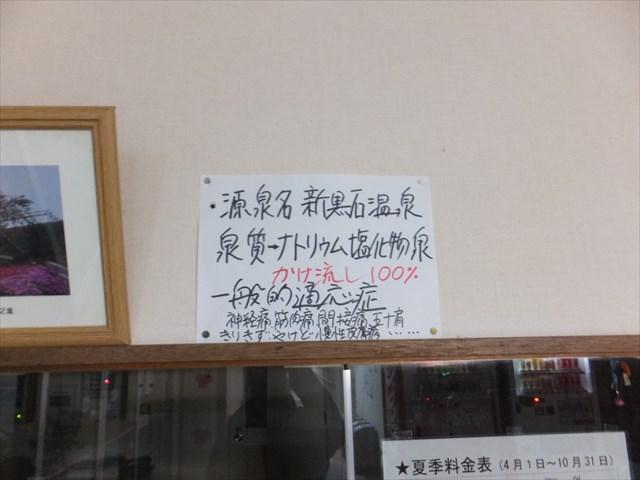 ・源泉名 新黒石温泉
泉質→ナトリウム塩化物泉
かけ流し 100%
一般的適応症
神経痛 筋肉痛 間接痛 五十肩
きりきず やけど 慢性皮膚病 ......
★夏季料金表(4月1日~10月31日)